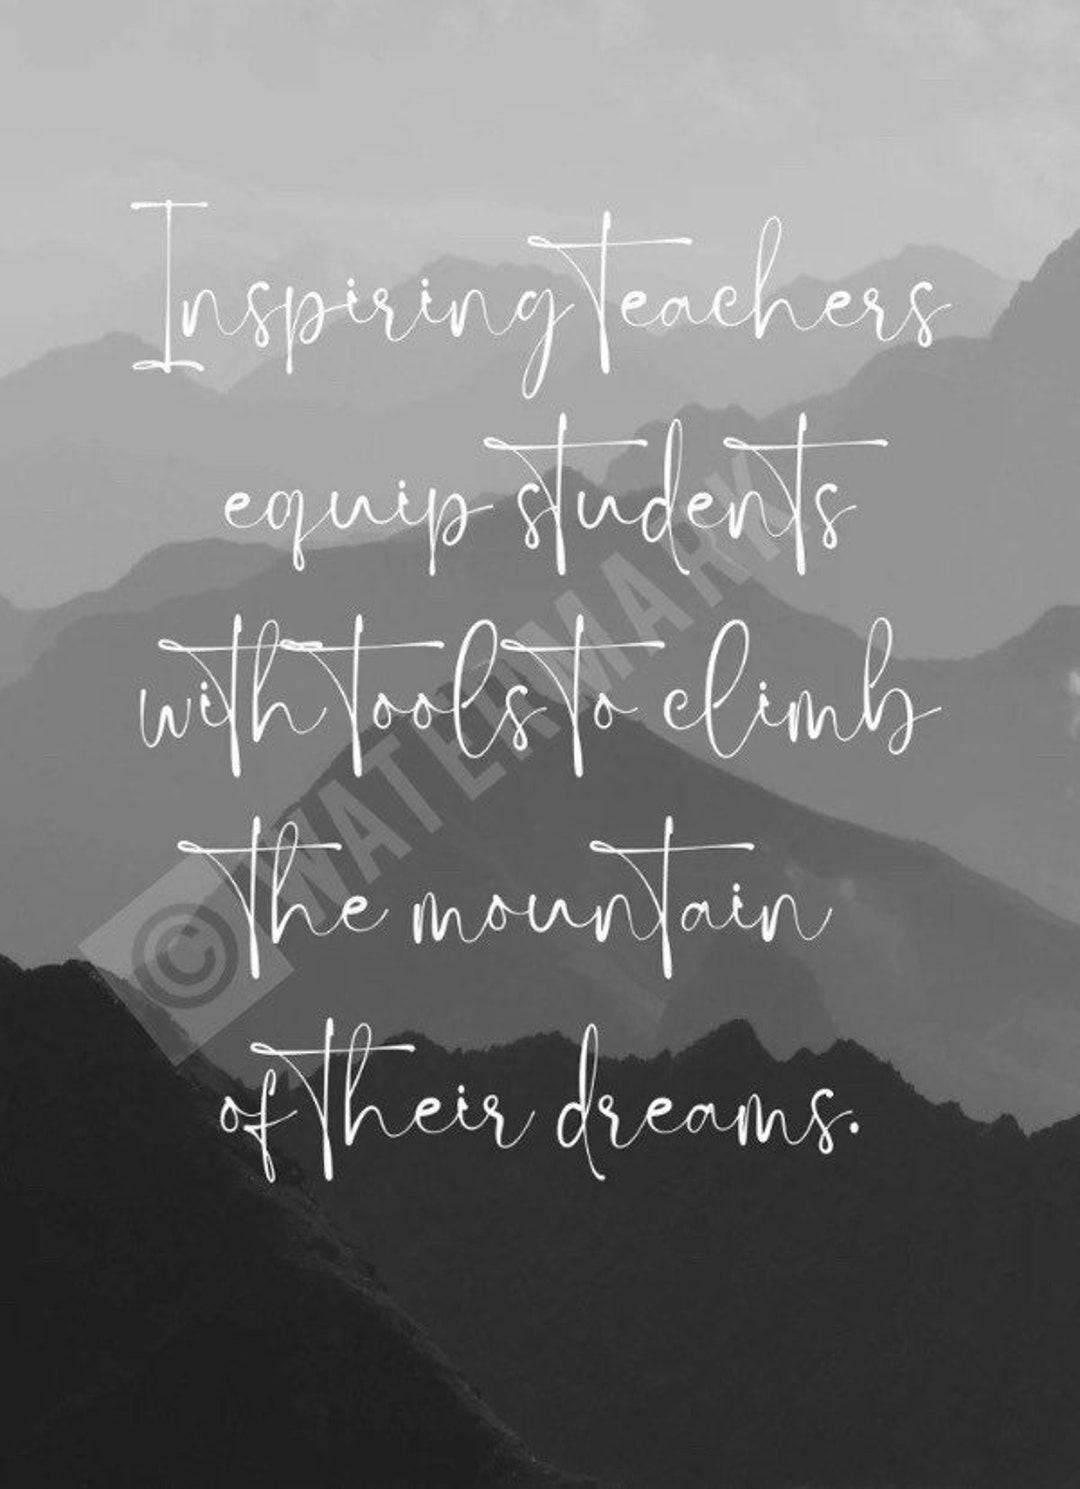 Inspiring teachers
equip students
with tools to climb
the mountain
of their dreams.
© WATERMARK